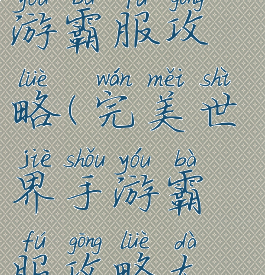 yóu bà fú gōng
游霸服攻
lüè wán měi shì
略(完美世
jiè shǒu yóu bà
界手游霸
fú gōng lüè dà
服攻略大